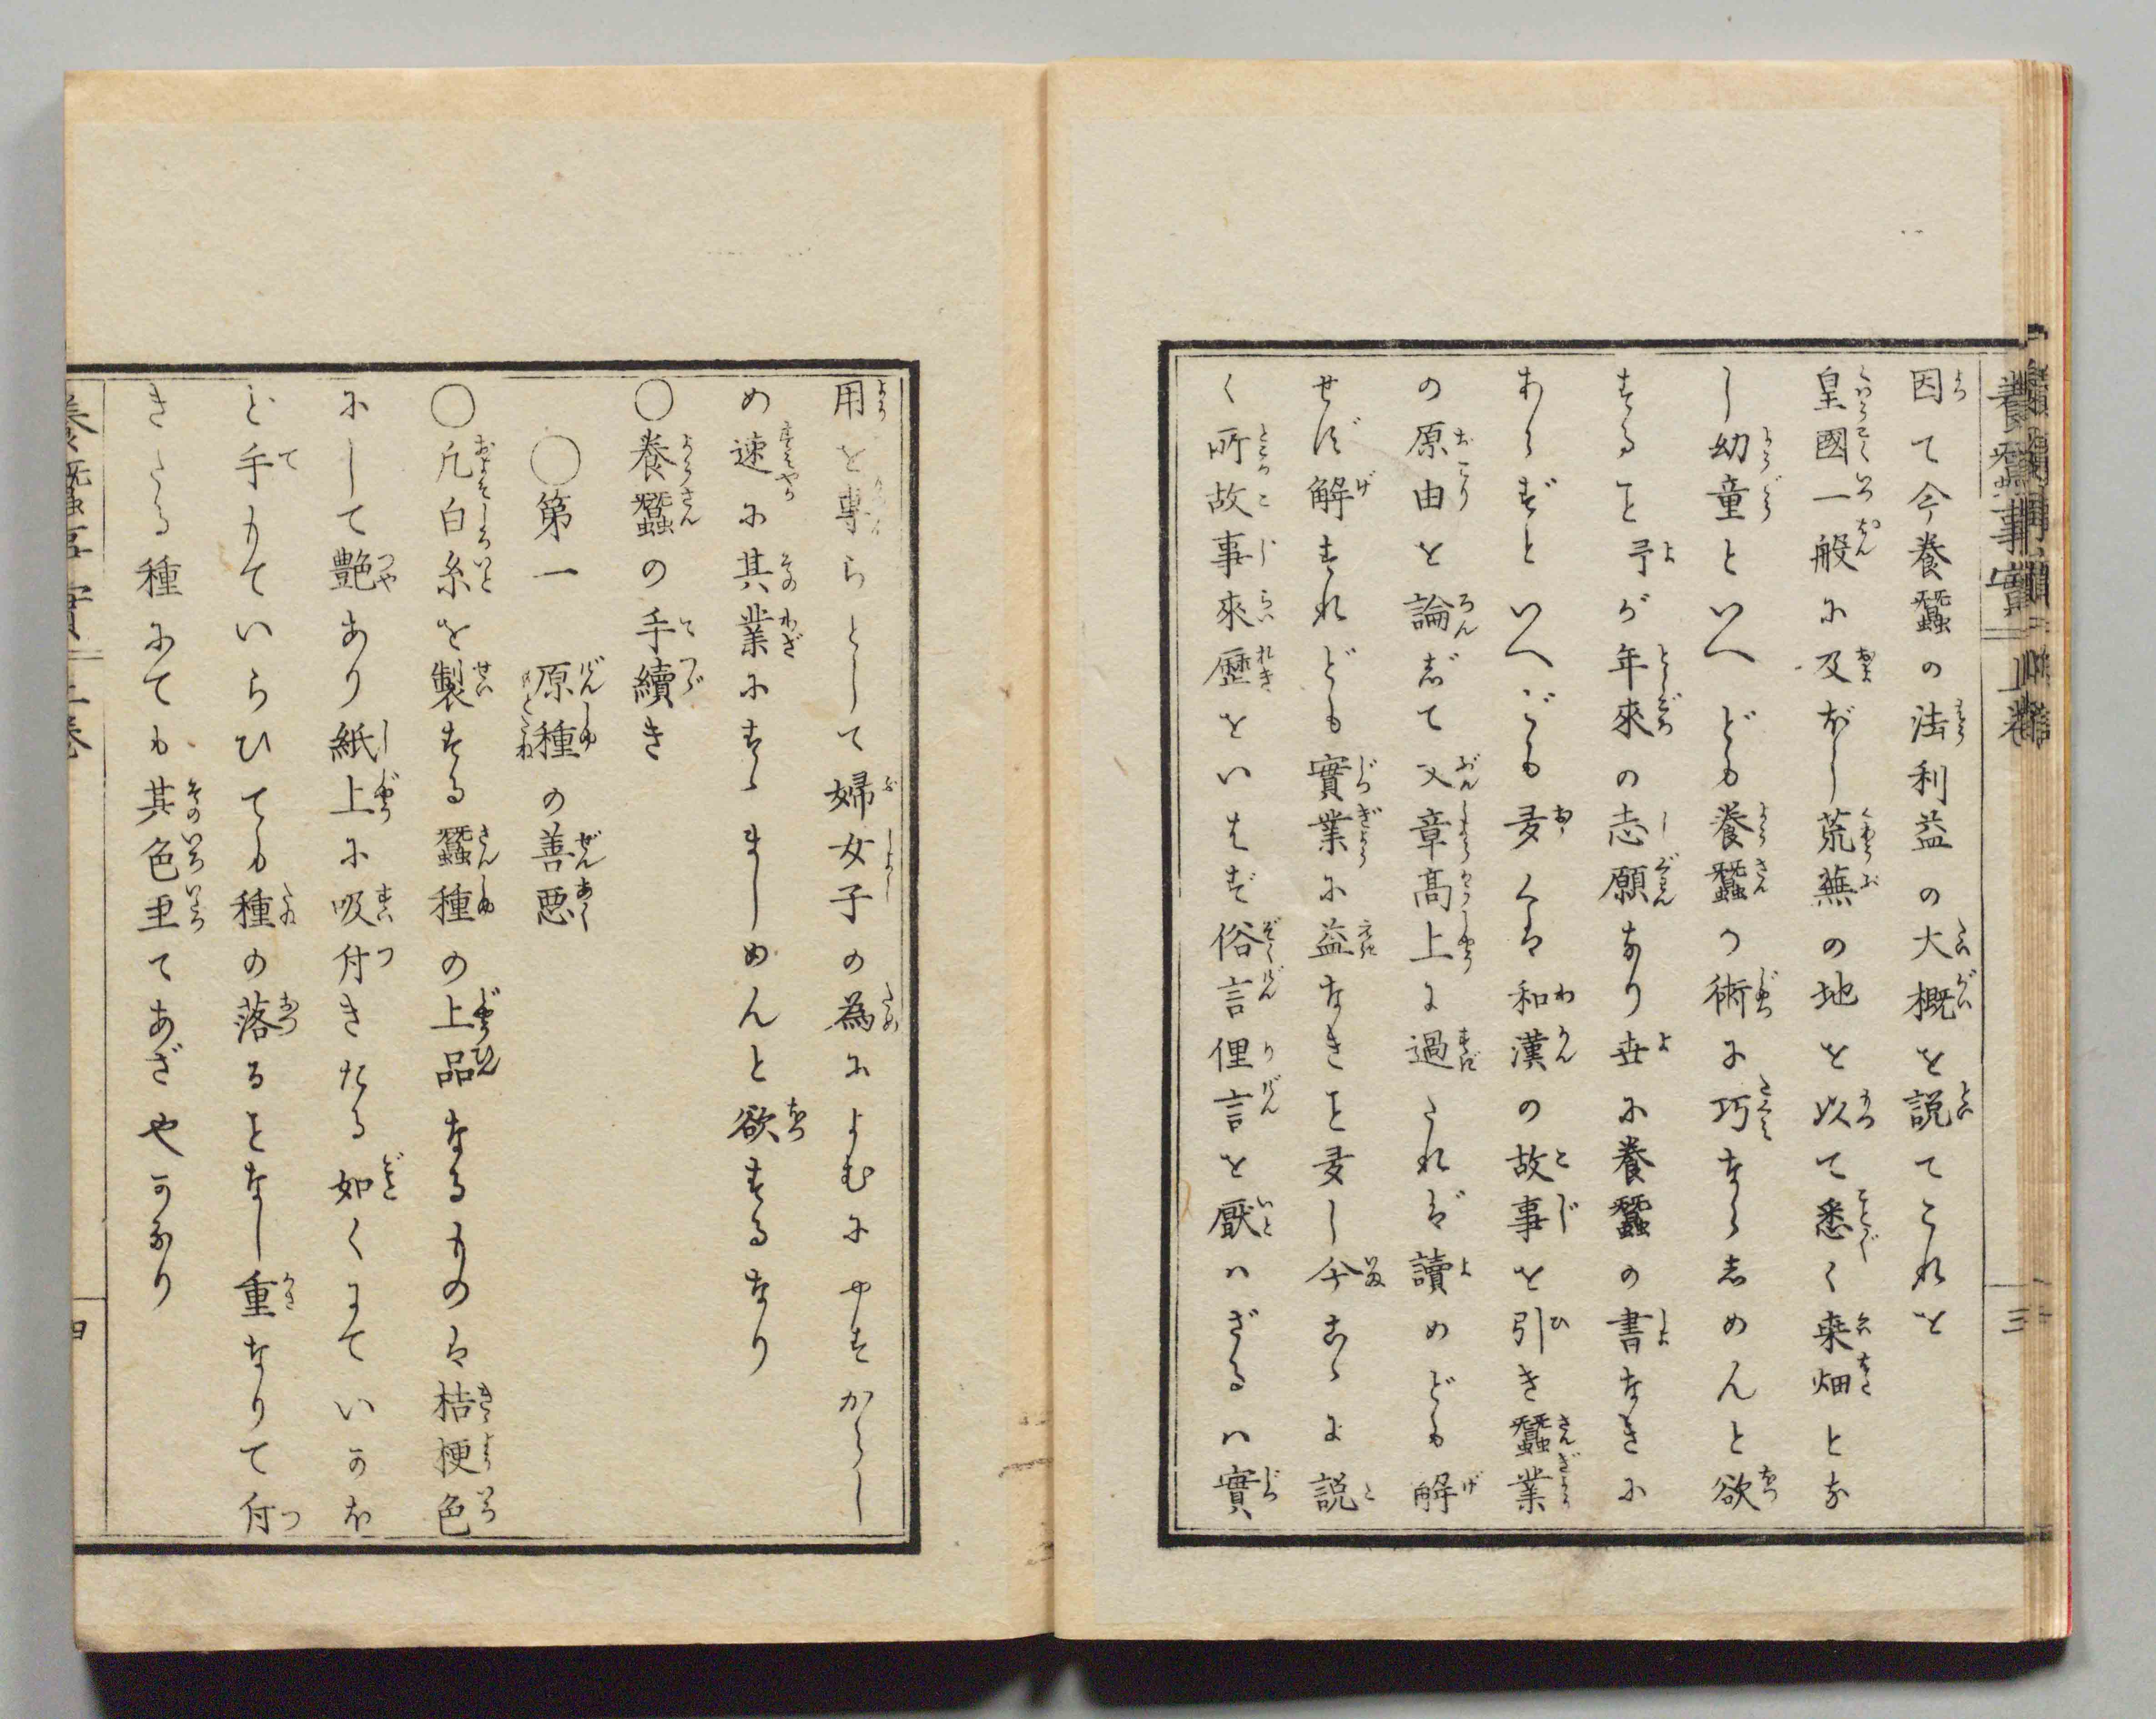 因て今養蠶の法利益の大概を説てこれを
皇國一般に及ぼし荒蕪の地を以て悉く桒畑とな
し幼童といへども養蠶の術に巧ならしめんと欲
するヿ予が年來の志願なり世に養蠶の書なきに
あらずといへども多くは和漢の故事を引き蠶業
の原由を論じて文章高上に過たれば讀めども解
せず解すれども實業に益なきヿ多し今こゝに説
く所故事來歷をいはず俗言俚言を厭はざるは實
用を專らとして婦女子の為によむにやすからし
め速に其業にすゝましめんと欲するなり
○養蠶の手續き
○第一 原種の善悪
○凡白糸を製する蠶種の上品なるものは桔梗色
にして艶あり紙上に吸付きたる如くにていかほ
ど手もていらひても種の落るヿなし重なりて付
きたる種にても其色亜てあざやかなり
養蠶事實 上巻
三